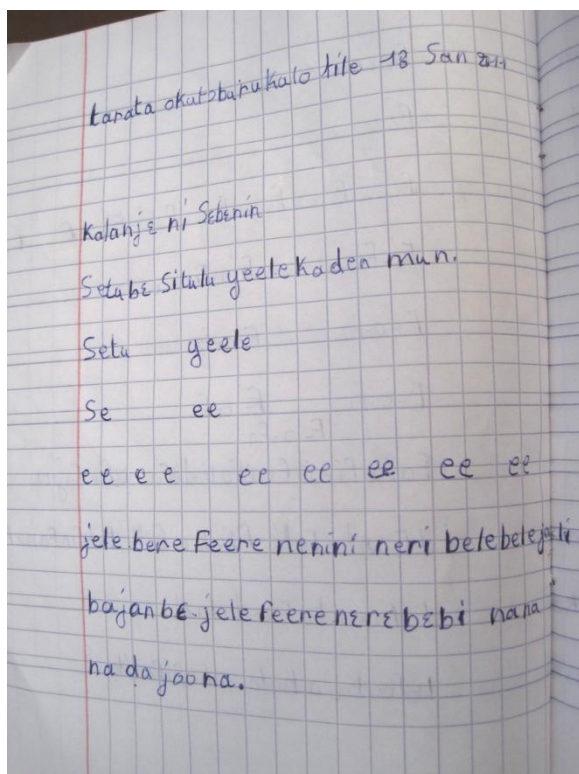 tarata okutɔburukalo tile 18 San 2011
Kalanjɛ ni Sɛbɛnin
Setubɛ situlu yeelekaden mun.
Setu yeele
Se ee
ee e e ee ee ee ee ee
jele bene feere nenini neri belebele
bajanbɛ. jele feere nɛrɛ bɛbi nana
na da joona.